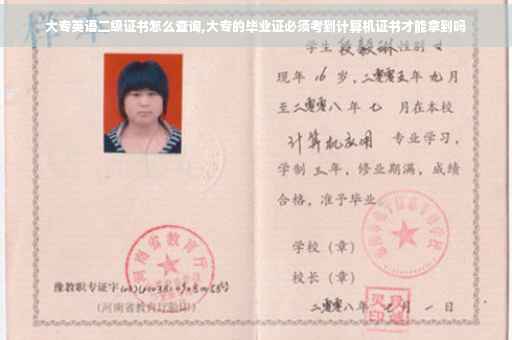 大专英语二级证书怎么查询,大专的毕业证必须考到计算机证书才能拿到吗
样本
学生段毅琳性别女
现年16岁,二零零五年九月
至二零零八年七月在本校
计算机应用 专业学习,
学制三年,修业期满,成绩
合格,准予毕业
学校(章)
校长(章)
二零零八年七月一日
河南省教育厅
豫教职专证字
(河南省教育厅验印)